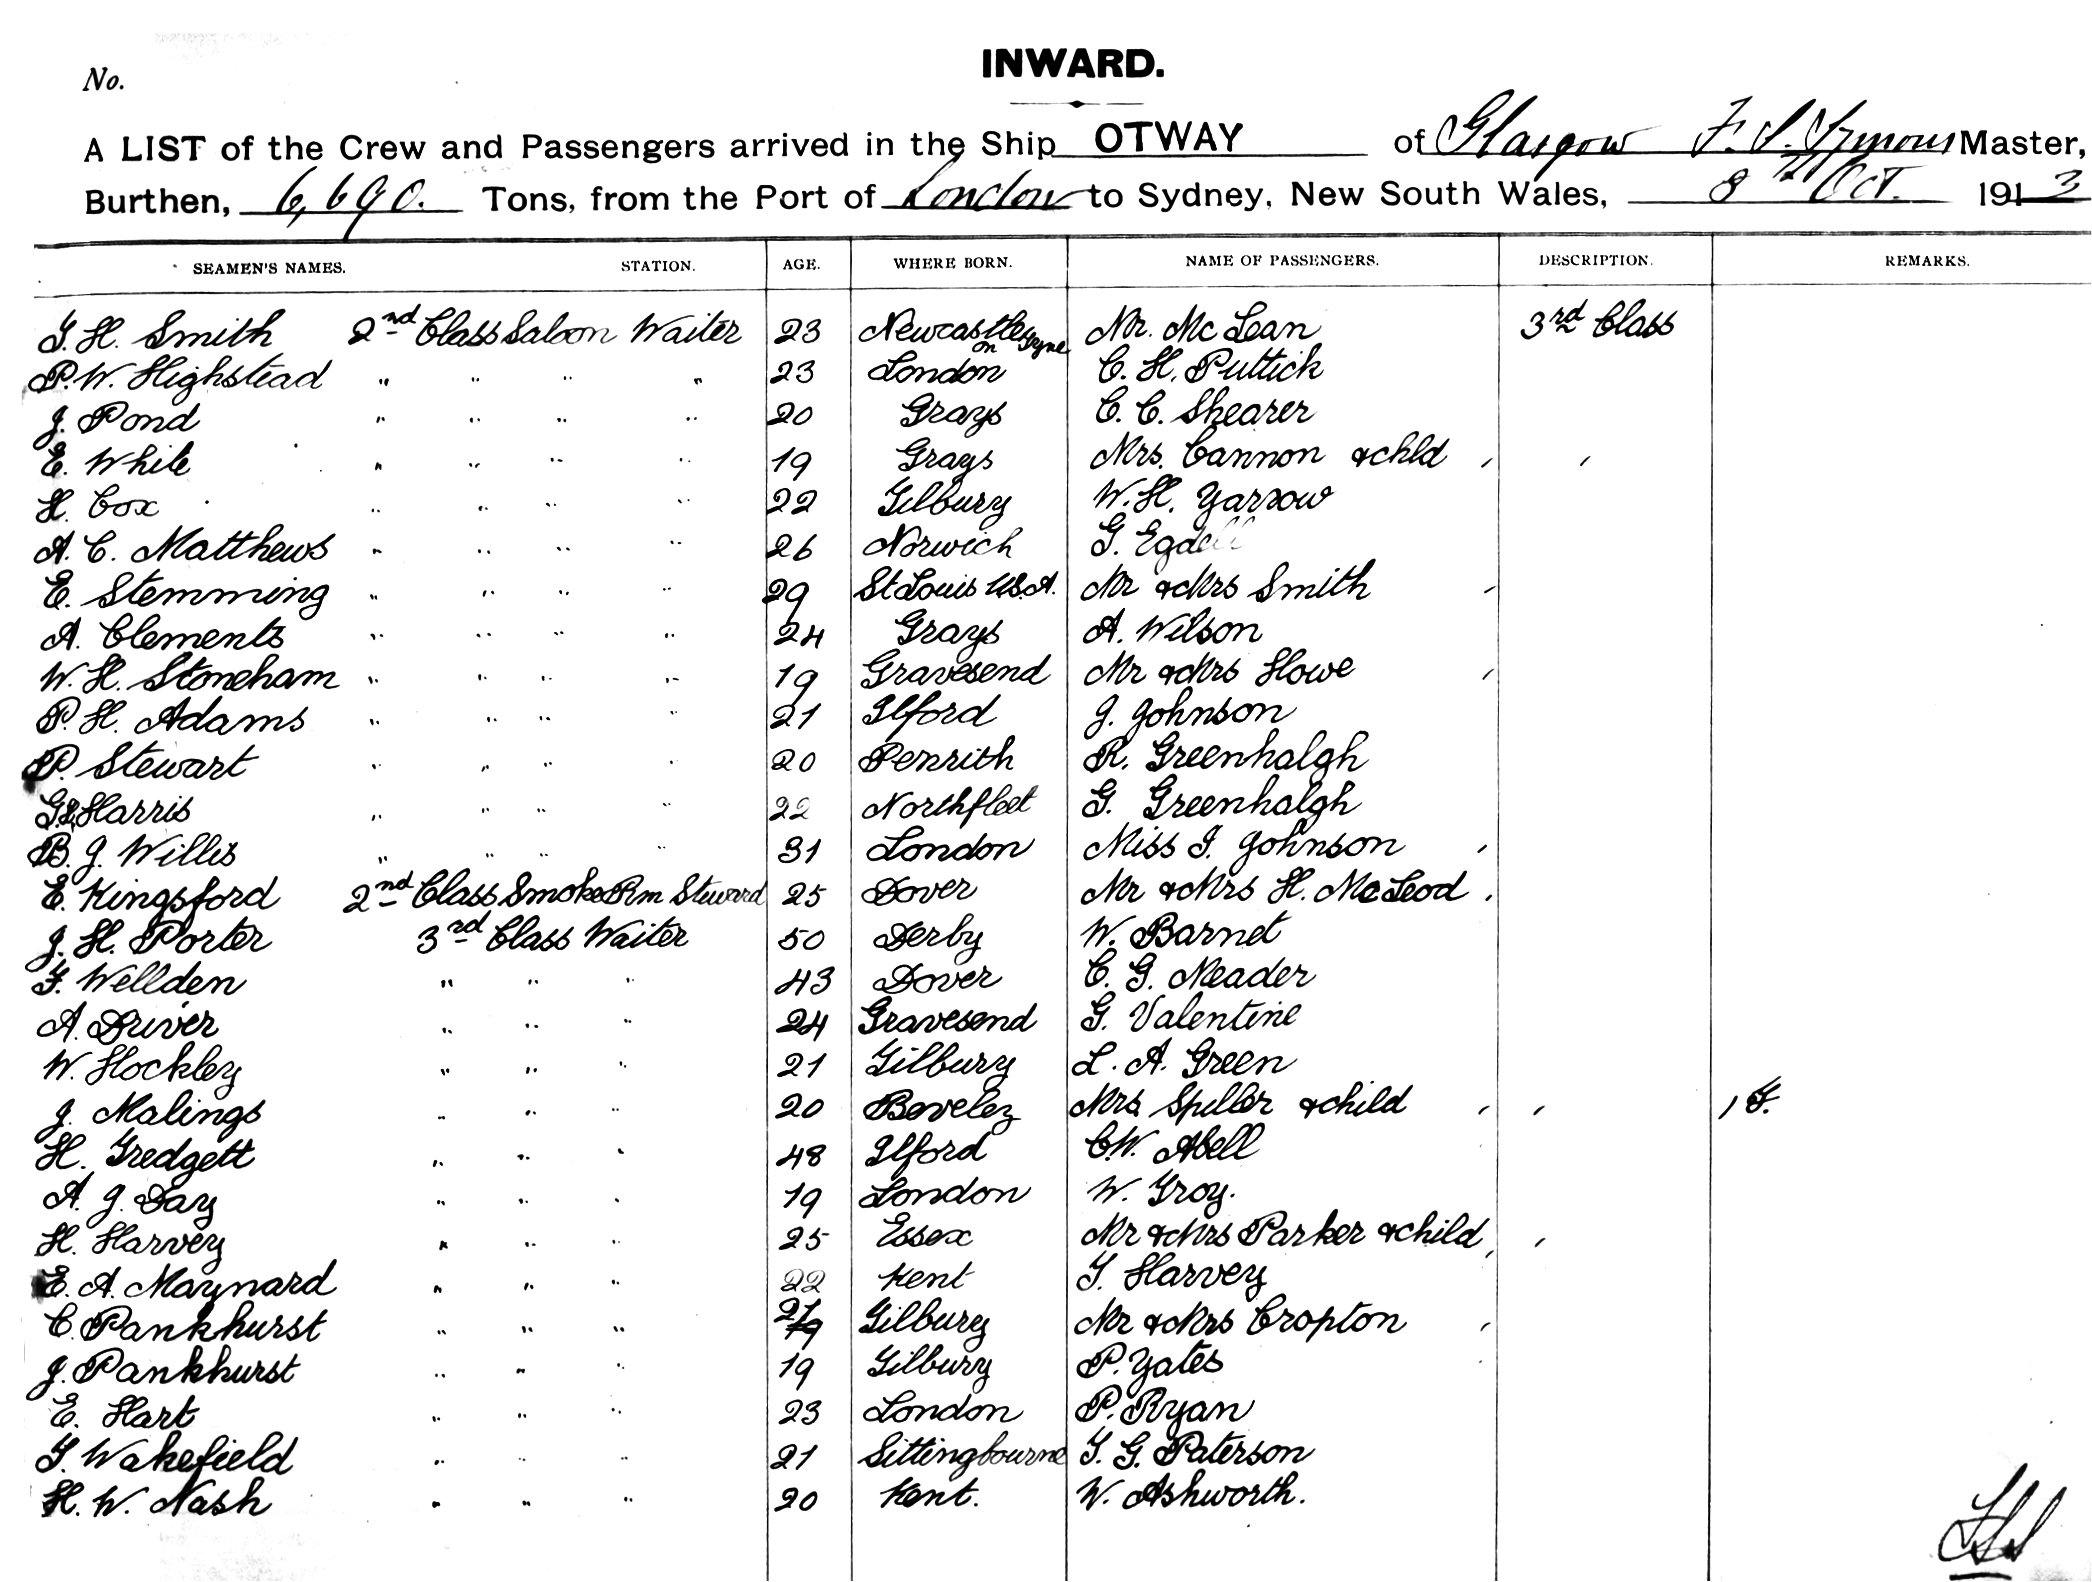 INWARD.
No.
A LIST of the Crew and Passengers arrived in the Ship OTWAY of Glasgow F. S. Symons Master,
Burthen, 6,690. Tons, from the Port of London to Sydney, New South Wales, 8th Oct. 1913
SEAMEN'S NAMES. STATION. AGE. WHERE BORN. NAME OF PASSENGERS. DESCRIPTION. REMARKS.
T. H. Smith 2nd Class Saloon Waiter 23 Newcastle on Tyne Mr. Mc Lean 3rd Class
P. W. Highstead " " " " 23 London C. H. Puttick
J. Pond " " " " 20 Grays C. C. Shearer
E. White " " " " 19 Grays Mrs. Cannon & chld , ,
H. Cox " " " " 22 Tilbury W. H. Yarrow
A. C. Matthews " " " " 26 Norwich G. Egdell
E. Stemming " " " " 29 St Louis U.S.A. Mr & Mrs Smith ,
A. Clements " " " " 24 Grays A. Wilson
W. H. Stoneham " " " " 19 Gravesend Mr & Mrs Howe ,
P. H. Adams " " " " 21 Ilford J. Johnson
P. Stewart " " " " 20 Penrith R. Greenhalgh
G. Harris " " " " 22 Northfleet G. Greenhalgh
B. J. Willis " " " " 31 London Miss I. Johnson ,
E. Kingsford 2nd Class Smoke Rm Steward 25 Dover Mr & Mrs H. McLeod ,
J. H. Porter 3rd Class Waiter 50 Derby W. Barnet
F. Wellden " " " 43 Dover C. G. Meader
A. Driver " " " 24 Gravesend G. Valentine
W. Hockley " " " 21 Tilbury L. A. Green
J. Malings " " " 20 Beveley Mrs Spiller & child , , 1 F.
H. Tredgett " " " 48 Ilford C.W. Abell
A. J. Day " " " 19 London W. Troy.
H. Harvey " " " 25 Essex Mr & Mrs Parker & child , ,
E. A. Maynard " " " 22 Kent T. Harvey
C. Pankhurst " " " 21 Tilbury Mr & Mrs Cropton ,
J. Pankhurst " " " 19 Tilbury P. Yates
E. Hart " " " 23 London P. Ryan
T. Wakefield " " " 21 Sittingbourne T. G. Paterson
H. W. Nash " " " 20 Kent. W. Ashworth.